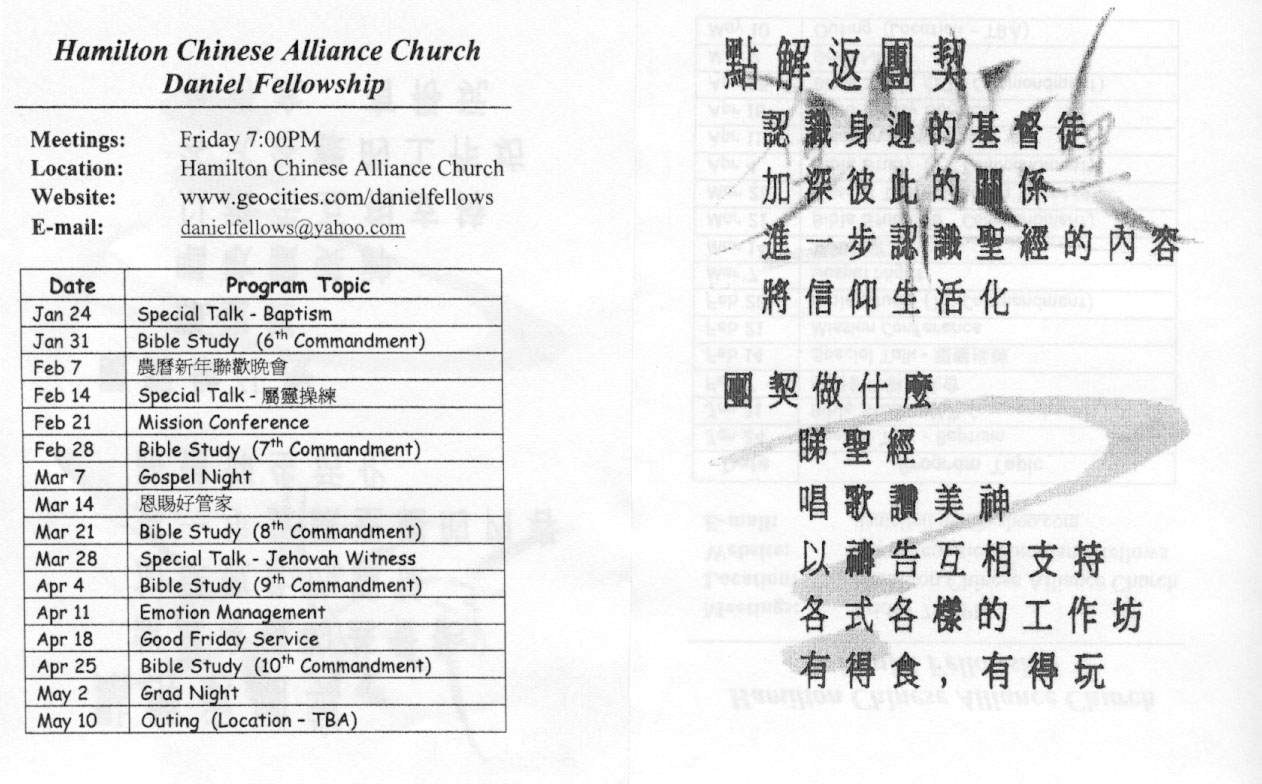 Hamilton Chinese Alliance Church
Daniel Fellowship
Meetings: Friday 7:00PM
Location: Hamilton Chinese Alliance Church
Website: www.geocities.com/danielfellows
E-mail: danielfellows@yahoo.com
Date Program Topic
Jan 24 Special Talk - Baptism
Jan 31 Bible Study (6th Commandment)
Feb 7 農曆新年聯歡晚會
Feb 14 Special Talk - 屬靈操練
Feb 21 Mission Conference
Feb 28 Bible Study (7th Commandment)
Mar 7 Gospel Night
Mar 14 恩賜好管家
Mar 21 Bible Study (8th Commandment)
Mar 28 Special Talk - Jehovah Witness
Apr 4 Bible Study (9th Commandment)
Apr 11 Emotion Management
Apr 18 Good Friday Service
Apr 25 Bible Study (10th Commandment)
May 2 Grad Night
May 10 Outing (Location – TBA)
點解返團契
認識身邊的基督徒
加深彼此的關係
進一步認識聖經的內容
將信仰生活化
團契做什麼
睇聖經
唱歌讚美神
以禱告互相支持
各式各樣的工作坊
有得食，有得玩